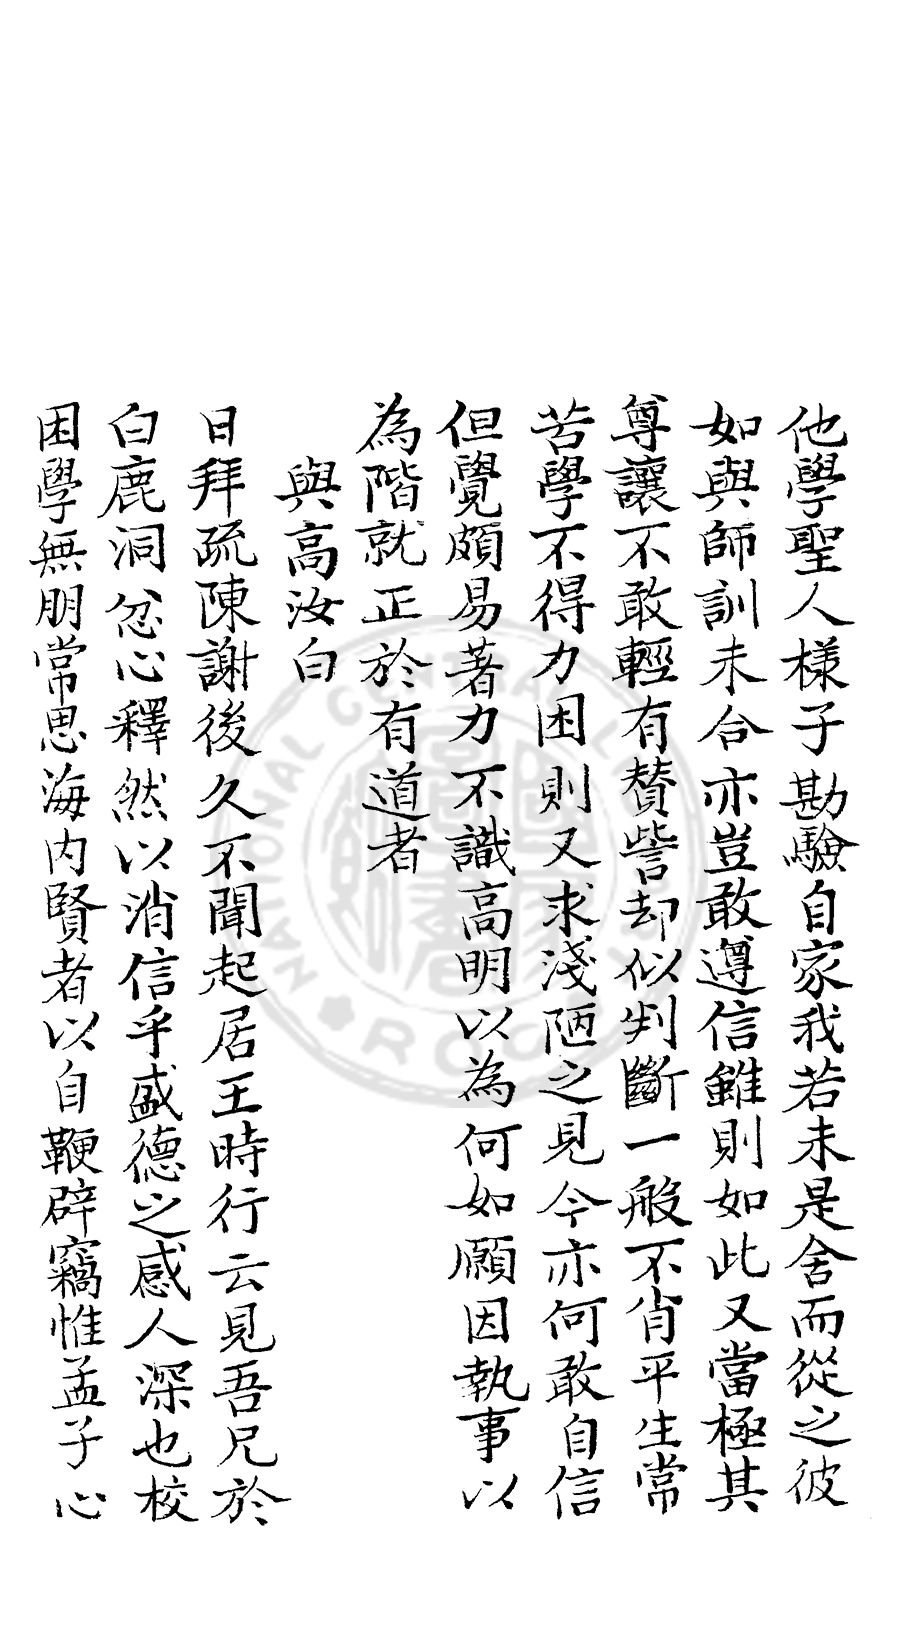 他學聖人樣子勘驗自家我若未是舍而從之彼
如與師訓未合亦豈敢遵信雖則如此又當極其
尊讓不敢輕有贊訾却似判斷一般不肖平生常
苦學不得力困則又求淺陋之見今亦何敢自信
但覺頗易著力不識高明以為何如願因執事以
為階就正於有道者
與高汝白
日拜疏陳謝後久不聞起居王時行云見吾兄於
白鹿洞忿心釋然以消信乎盛德之感人深也校
困學無朋常思海內賢者以自鞭辟竊惟孟子心
NATIONAL CENTRAL LIBRARY R.O.C.